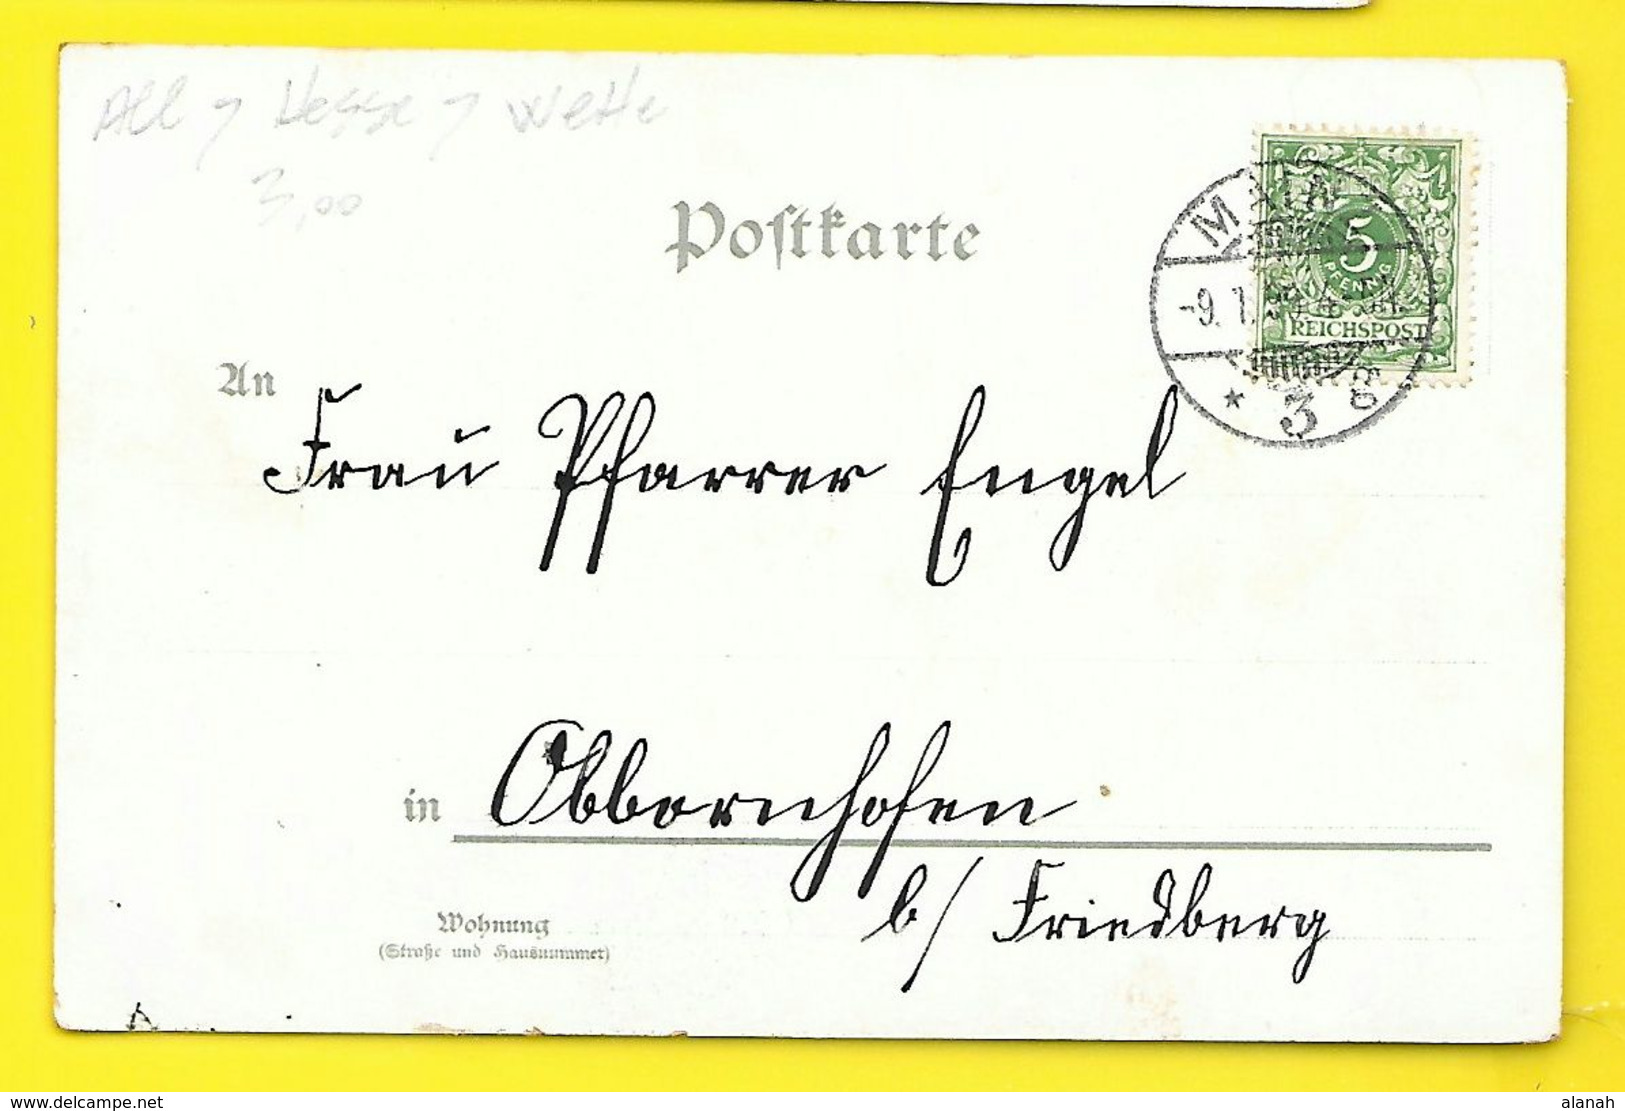 All > Hesse > Wette
3,00
Postkarte
5
PFENNIG
REICHSPOST
MAINZ
-9.1.
* 3 g
An
Frau Pfarrer Engel
in Obbornhofen
b/ Friedberg
Wohnung
(Straße und Hausnummer)
delcampe.net
alanah